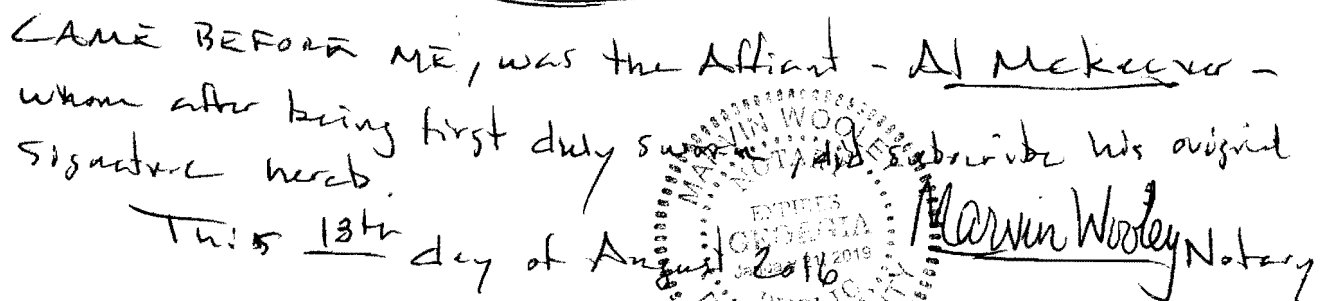 CAME BEFORE ME, was the Affiant - Al Mckeever -
whom after being first duly sworn, did subscribe his original
signature hereto.
This 13th day of August 2016 Marvin Wooley Notary
MARVIN WOOLEY
NOTARY
EXPIRES
GEORGIA
2019
PUBLIC